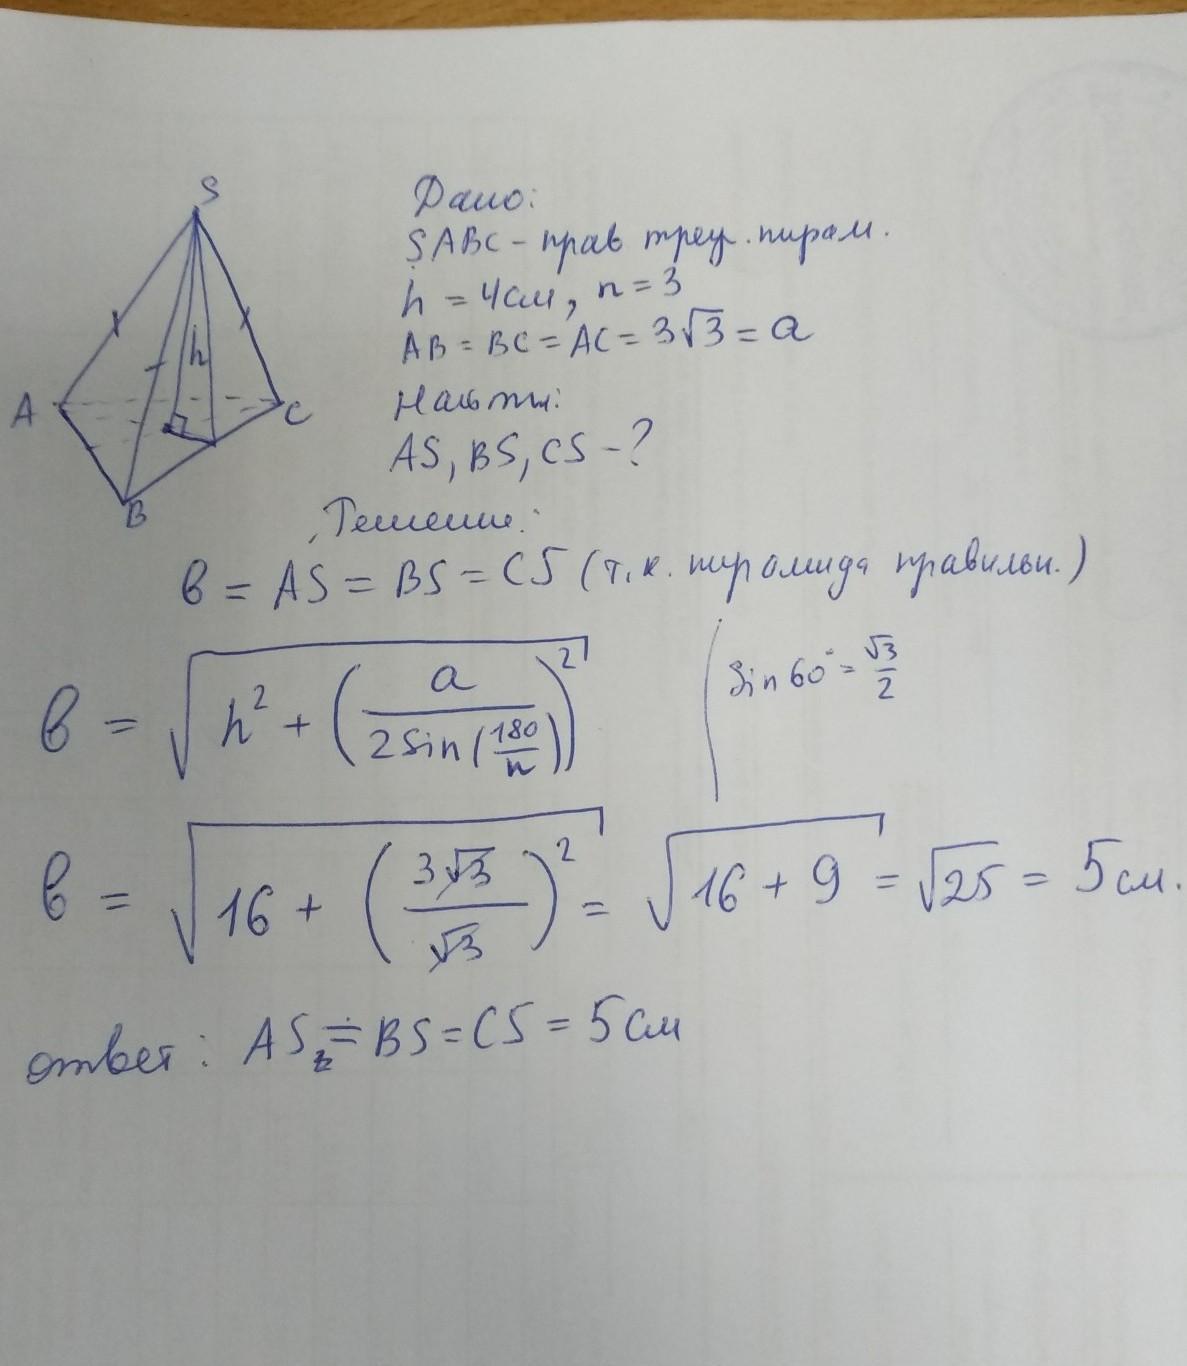 S
A
B
C
h
Дано:
SABC - прав треуг. пирам.
h = 4см, n = 3
AB = BC = AC = 3√3 = a
Найти:
AS, BS, CS - ?
Решение:
в = AS = BS = CS (т.к. пирамида правильн.)
в = √(h² + (a / 2 sin(180/n))²)
sin 60° = √3/2
в = √(16 + (3√3 / √3)²) = √(16 + 9) = √25 = 5см.
ответ: AS = BS = CS = 5см